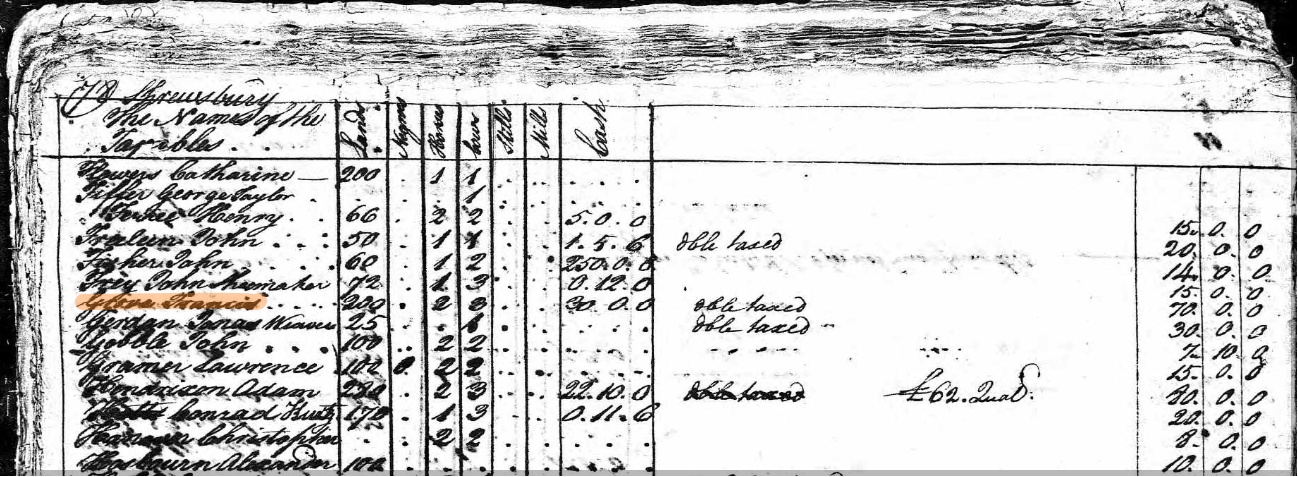 78 Shrewsbury
The Names of the Taxables. Land Negroes Horses Cows Stills Mill Cash
Flowers Catharine 200 1 1
Fiffer George Taylor 1
Henry 66 2 2 5. 0. 0 15. 0. 0
John 50 1 1 1. 5. 6 dble taxed 20. 0. 0
Fisher John 60 1 2 250. 0. 0 14. 0. 0
Frey John Shoemaker 72 1 3 0. 12. 0 15. 0. 0
Francis 200 2 3 30. 0. 0 dble taxed 70. 0. 0
Jonas Weaver 25 1 dble taxed 30. 0. 0
John 100 2 2 7. 10. 0
Gramer Lawrence 100 0 2 2 15. 0. 0
Hendrixon Adam 2 3 22. 10. 0 dble taxed £62. Qual. 30. 0. 0
Conrad 170 1 3 0. 11. 6 20. 0. 0
Christopher 2 2 8. 0. 0
Alexander 100 10. 0. 0